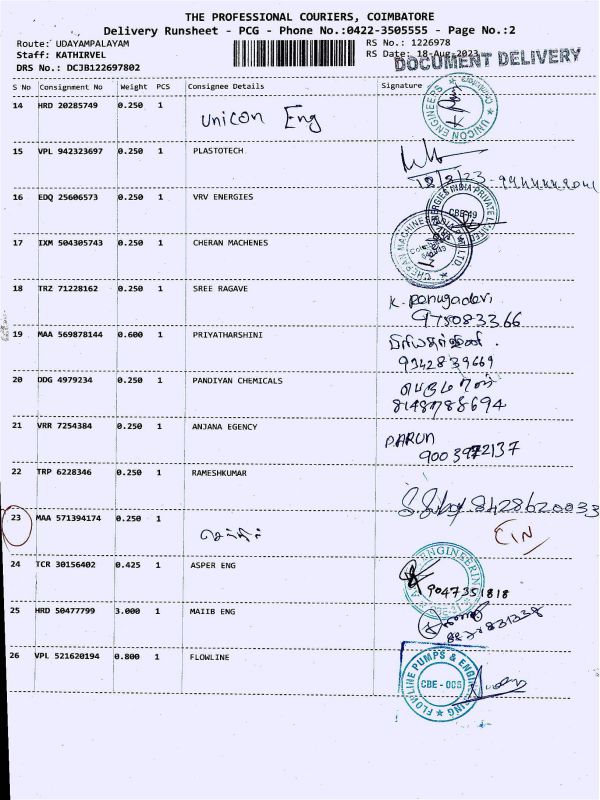 THE PROFESSIONAL COURIERS, COIMBATORE
Delivery Runsheet - PCG - Phone No.:0422-3505555 - Page No.:2
Route: UDAYAMPALAYAM
Staff: KATHIRVEL
DRS No.: DCJB122697802
RS No.: 1226978
RS Date: 18-Aug-2023
DOCUMENT DELIVERY
S No Consignment No Weight PCS Consignee Details Signature
14 HRD 20285749 0.250 1 Unicon Eng
UNICON ENGINEERS
15 VPL 942323697 0.250 1 PLASTOTECH
16 EDQ 25606573 0.250 1 VRV ENERGIES
CBE-49
17 IXM 504305743 0.250 1 CHERAN MACHENES
18 TRZ 71228162 0.250 1 SREE RAGAVE
19 MAA 569878144 0.600 1 PRIYATHARSHINI
9942839669
20 DDG 4979234 0.250 1 PANDIYAN CHEMICALS
21 VRR 7254384 0.250 1 ANJANA EGENCY
22 TRP 6228346 0.250 1 RAMESHKUMAR
8428620033
23 MAA 571394174 0.250 1
24 TCR 30156402 0.425 1 ASPER ENG
9047351818
25 HRD 50477799 3.000 1 MAIIB ENG
26 VPL 521620194 0.800 1 FLOWLINE
FLOWLINE PUMPS & ENGINEERING
CBE - 006